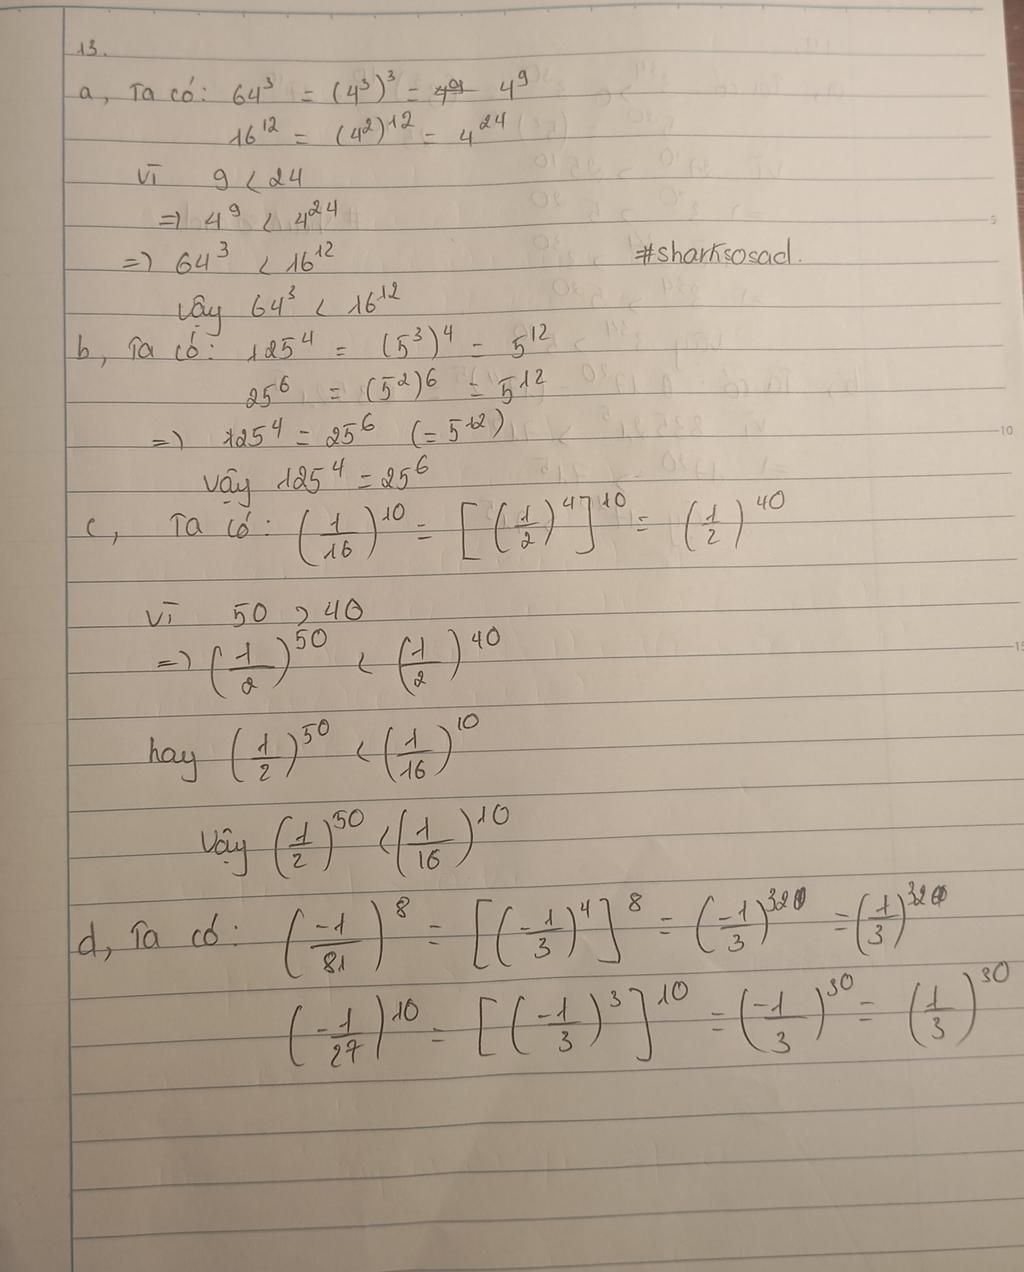 13.
a, Ta có: 64³ = (4³)³ = 4⁹
16¹² = (4²)¹² = 4²⁴
Vì 9 < 24
=> 4⁹ < 4²⁴
=> 64³ < 16¹²
#sharksosad.
Vậy 64³ < 16¹²
b, Ta có: 125⁴ = (5³)⁴ = 5¹²
25⁶ = (5²)⁶ = 5¹²
=> 125⁴ = 25⁶ (= 5¹²)
Vậy 125⁴ = 25⁶
c, Ta có: (1/16)¹⁰ = [(1/2)⁴]¹⁰ = (1/2)⁴⁰
Vì 50 > 40
=> (1/2)⁵⁰ < (1/2)⁴⁰
hay (1/2)⁵⁰ < (1/16)¹⁰
Vậy (1/2)⁵⁰ < (1/16)¹⁰
d, Ta có: (-1/81)⁸ = [(-1/3)⁴]⁸ = (-1/3)³² = (1/3)³²
(-1/27)¹⁰ = [(-1/3)³]¹⁰ = (-1/3)³⁰ = (1/3)³⁰
5
10
15